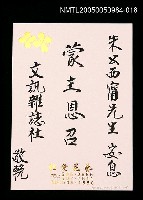 NMTL20050050984-018
朱公西甯先生 安息
蒙主恩召
文訊雜誌社
敬輓